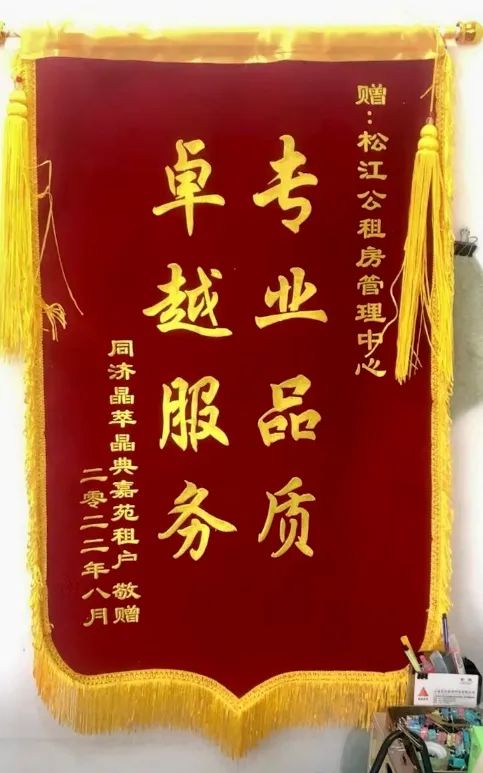 赠：松江公租房管理中心
专业品质
卓越服务
同济晶萃晶典嘉苑租户 敬赠
二零二二年八月